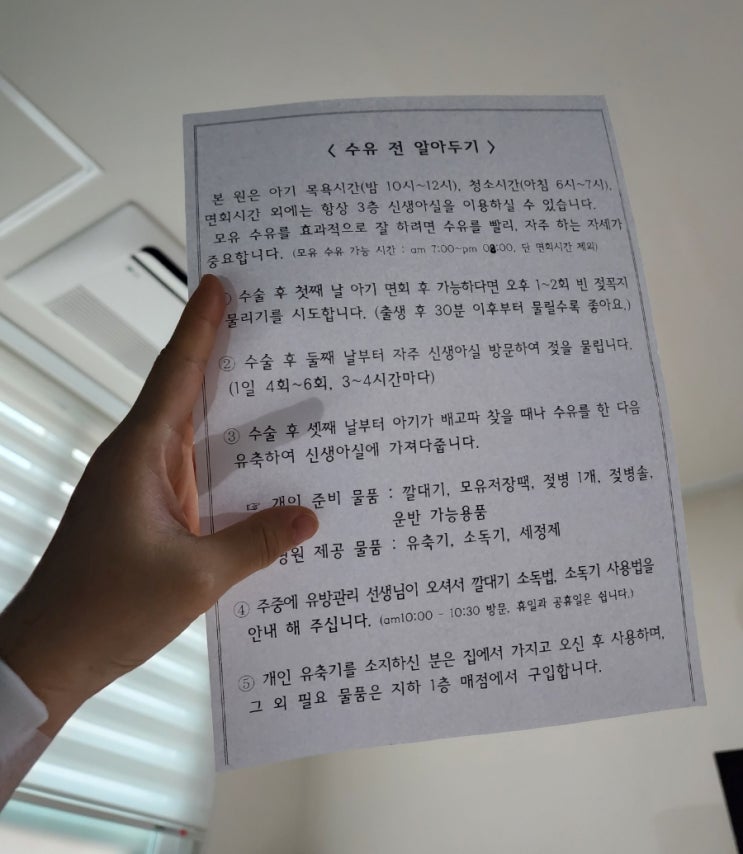 < 수유 전 알아두기 >
본 원은 아기 목욕시간(밤 10시~12시), 청소시간(아침 6시~7시),
면회시간 외에는 항상 3층 신생아실을 이용하실 수 있습니다.
모유 수유를 효과적으로 잘 하려면 수유를 빨리, 자주 하는 자세가
중요합니다. (모유 수유 가능 시간 : am 7:00~pm :00, 단 면회시간 제외)
수술 후 첫째 날 아기 면회 후 가능하다면 오후 1~2회 빈 젖꼭지
물리기를 시도합니다. (출생 후 30분 이후부터 물릴수록 좋아요.)
② 수술 후 둘째 날부터 자주 신생아실 방문하여 젖을 물립니다.
(1일 4회~6회, 3~4시간마다)
③ 수술 후 셋째 날부터 아기가 배고파 찾을 때나 수유를 한 다음
유축하여 신생아실에 가져다줍니다.
☞ 개인 준비 물품 : 깔대기, 모유저장팩, 젖병 1개, 젖병솔,
운반 가능용품
병원 제공 물품 : 유축기, 소독기, 세정제
④ 주중에 유방관리 선생님이 오셔서 깔대기 소독법, 소독기 사용법을
안내 해 주십니다. (am10:00 - 10:30 방문, 휴일과 공휴일은 쉽니다.)
⑤ 개인 유축기를 소지하신 분은 집에서 가지고 오신 후 사용하며,
그 외 필요 물품은 지하 1층 매점에서 구입합니다.